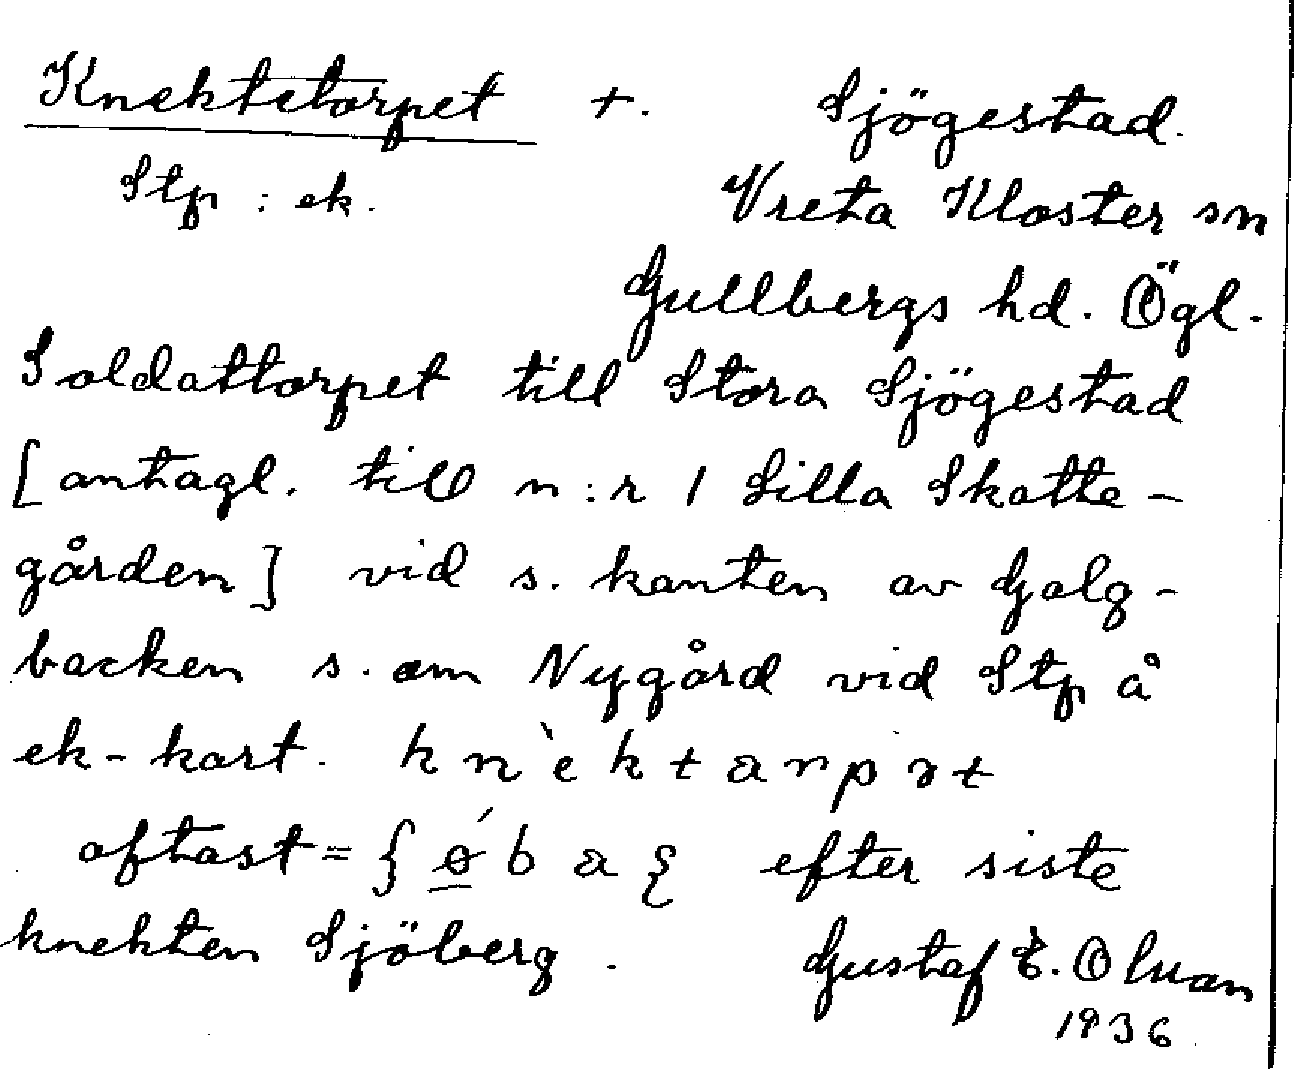 Knektetorpet +. Sjögestad.
Stp : ek. Vreta Kloster sn
Gullbergs hd. Ögl.
Soldattorpet till Stora Sjögestad
[antagl. till n:r 1 Lilla Skatte-
gården] vid s. kanten av Galg-
backen s. om Nygård vid Stp å
ek-kart. knὲktarpət
oftast = ʃǿba efter siste
knekten Sjöberg. Gustaf E. Oluan
1936